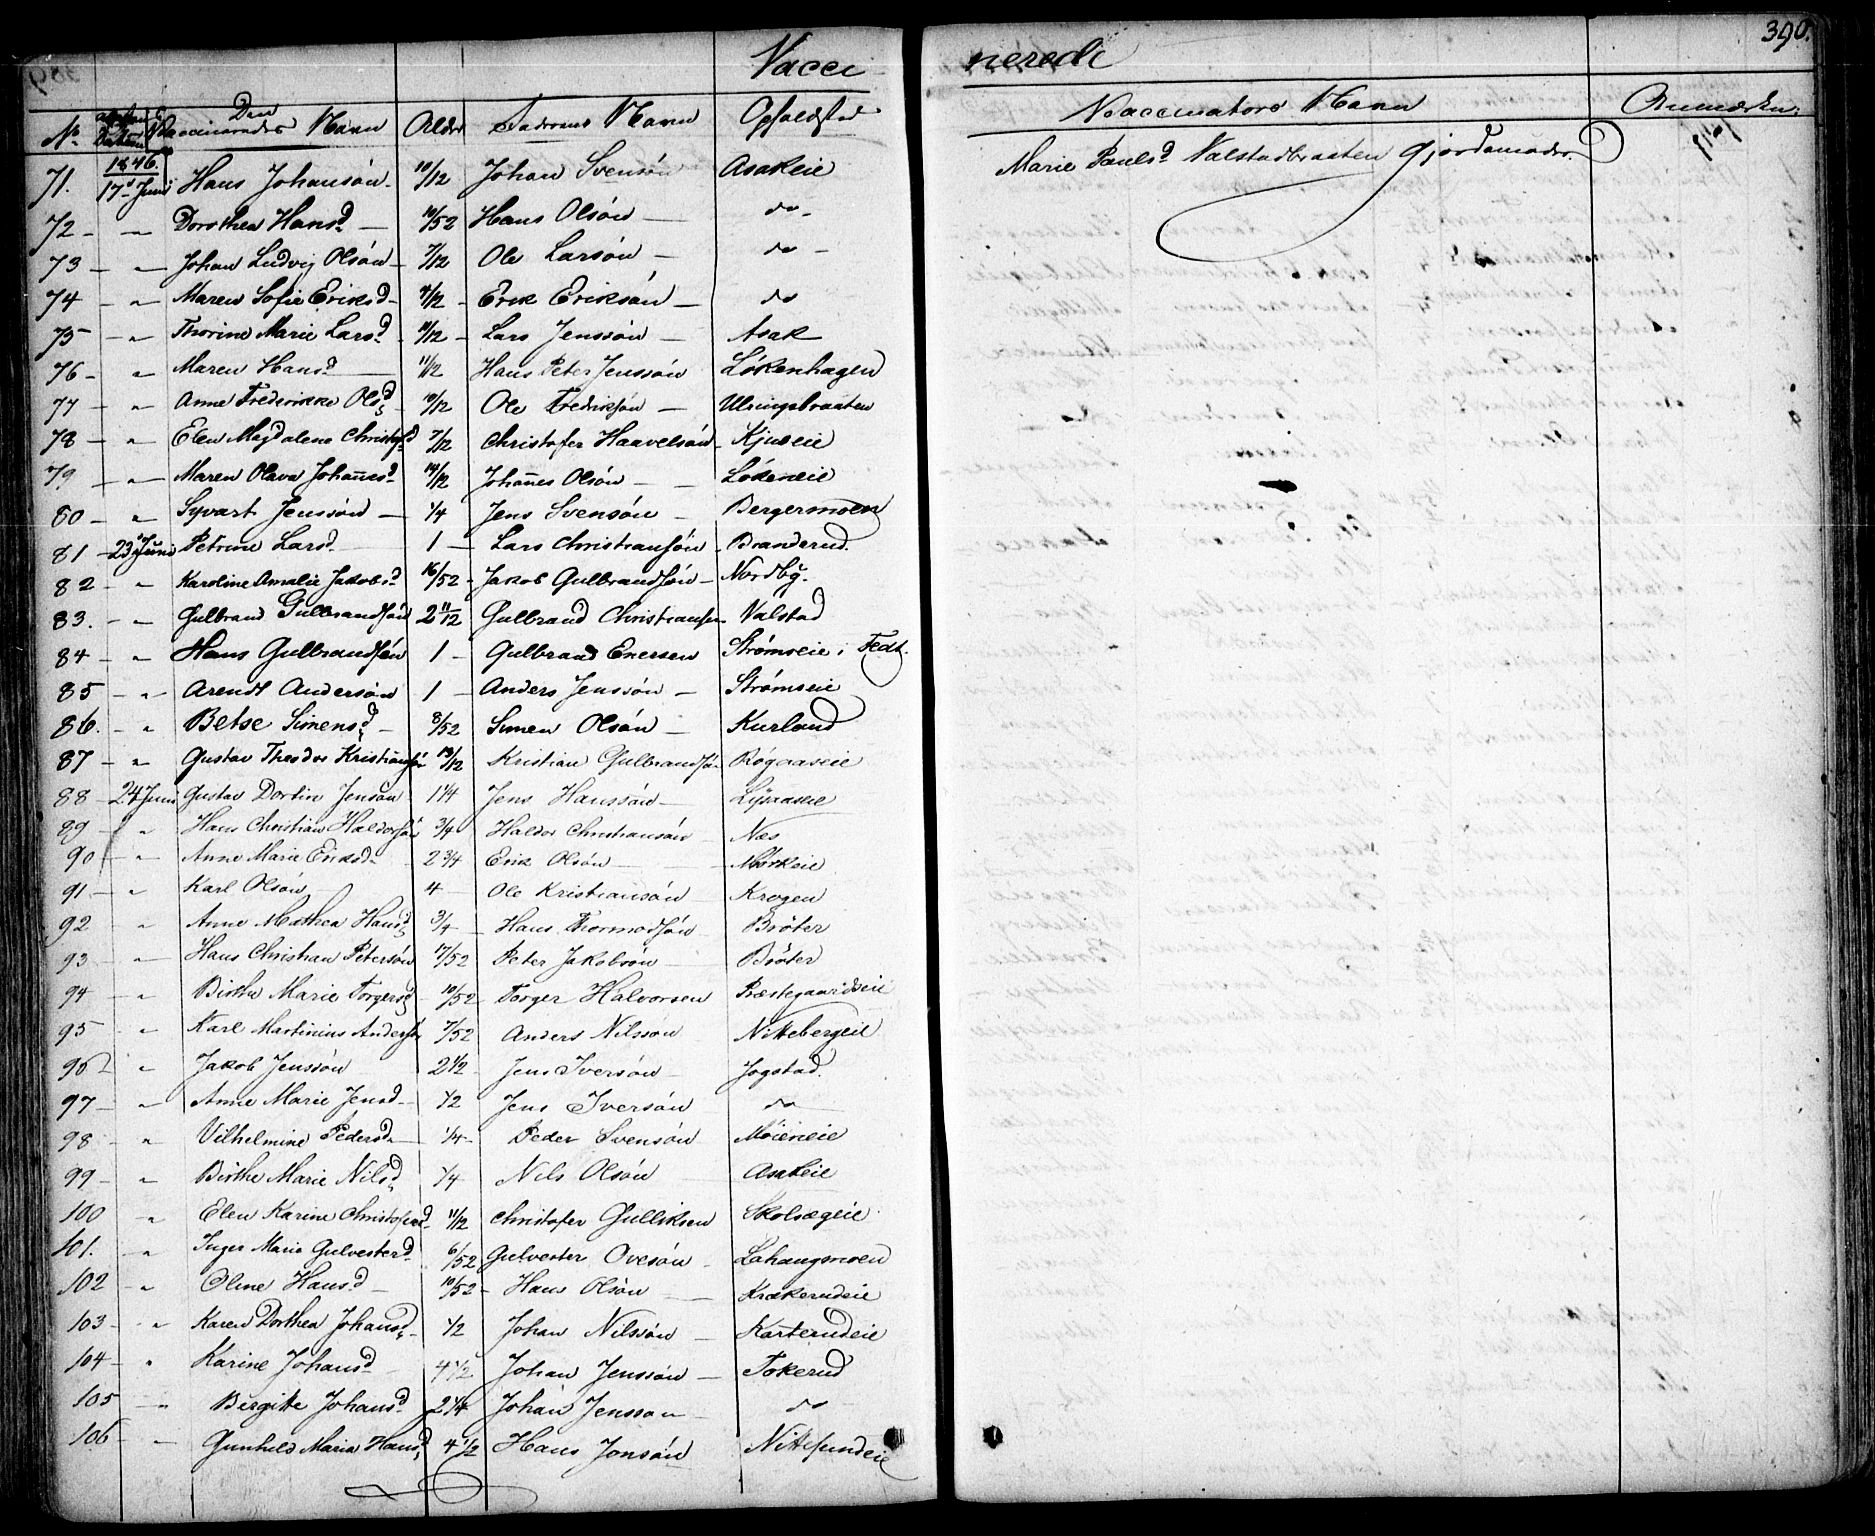 390.
Vacci nerede
No Datum Den Vaccineredes Navn Alder Faderens Navn Opholdsted Vaccinators Navn Anmærkn:
1846.
71. 17d Juni Hans Johansön 10/12 Johan Svensön Asakeie Marie Paulsd Valstadbraaten Gjordemoder.
72 - " Dorothea Hansd - 10/52 Hans Olsön - do -
73 - " Johan Ludvig Olsön - 7/12 Ole Larsön - do -
74 - " Maren Sofie Eriksd - Erik Eriksön - do
75 - " Thorine Marie Larsd - Lars Jenssön - Asak
76 - " Maren Hansd - 11/12 Hans Peter Jenssön Løkenhagen
77 - " Anne Frederikke Olsd - 10/12 Ole Fredriksön - Ulringsbraaten
78 - " Elen Magdalene Christofd 7/12 Christofer Haavelsön - Kjuseie
79 - " Maren Olava Johañesd 14/12 Johañes Olsön - Løkeneie
80 - " Syvart Jenssön - 1/4 Jens Svensön - Bergermoen
81 - 23d Juni Petrine Larsd 1 - Lars Christiansön - Branderud.
82 - " Karoline Amalie Jakobsd 16/52 - Jakob Gulbrandsön - Nordbÿ.
83. - " Gulbrand Gulbrandsön 2 11/12 Gulbrand Christiansen Valstad
84 - " Hans Gulbrandsön 1 - Gulbrand Enersen Strømseie i Fedt.
85 - " Arendt Andersön 1 - Anders Jenssön - Strømseie
86. - " Betse Simensd - 8/52 Simen Olsön - Kurland
87 - " Gustav Theodor Kristiansön 13/12 Kristian Gulbrandsön Rögaaseie
88 - 24d Juni Gustav Dortin Jensön 1 1/4 Jens Hanssön - Lysaaseie
89 - " Hans Christian Haldorsön 3/4 Haldor Christiansön - Næs
90 - " Anne Marie Eriksd - 2 3/4 Erik Olsön - Mörkeie
91 - " Karl Olsön - 4 - Ole Kristiansön - Krogen
92 " Anne Mathea Hansd 3/4 - Hans Thormodsön - Bröter
93 - " Hans Christian Petersön 17/52 Peter Jakobsön - Bröter
94 - " Birthe Marie Torgersd - 10/52 Torger Halvorsen Præstegaardseie
95 - " Karl Martinius Andersön 7/52 Anders Nilssön Nittebergeie
96 - " Jakob Jenssön 2 1/2 - Jens Iversön - Jogstad.
97 - " Anne Marie Jensd - 1/2 Jens Iversön do
98 - " Vilhelmine Pedersd - 1/4 - Peder Svensön Möieneie
99 - " Birthe Marie Nilsd 1/4 Nils Olsön Asakeie
100 " Elen Karine Christofersd 11/12 Christofer Gulliksen Skolsægeie
101. - " Inger Maria Gulvesterd - 6/52 Gulvester Ovesön - Lahaugmoen
102 - " Oline Hansd - 10/52 - Hans Olsön - Krækerudeie
103 - " Karen Dorthea Johansd - 1/2 Johan Nilssön - Karterudeie
104 - " Karine Johansd - 4 1/2 Johan Jenssön - Tokerud
105 - " Bergitte Johansd 2 1/4 Johan Jensson - do
106 - " Gunhild Maria Hansd 4 1/2 Hans Jonsön Nittesundeie